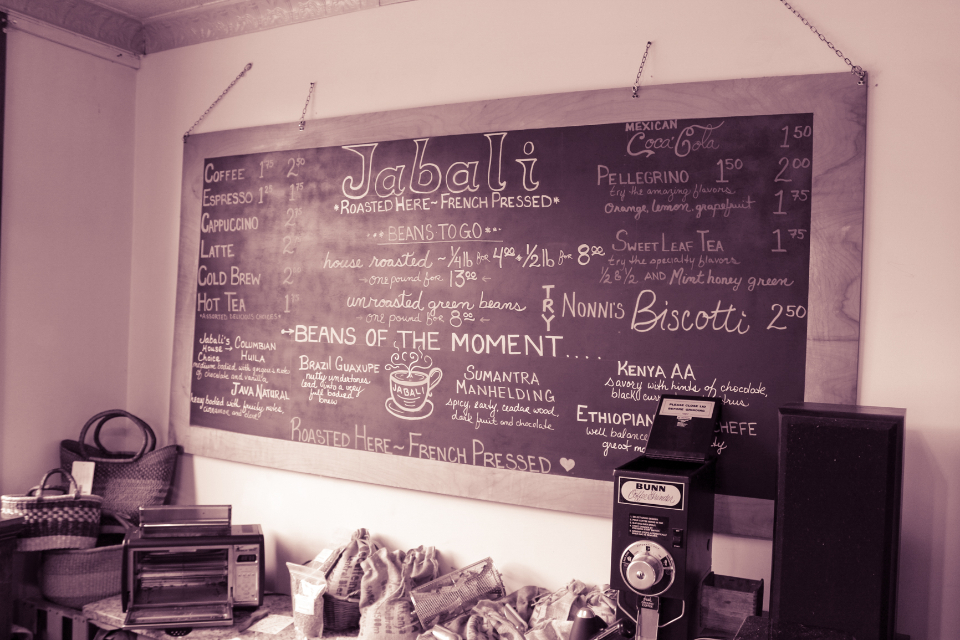 Jabali
*ROASTED HERE~FRENCH PRESSED*
COFFEE 1.75 2.50
ESPRESSO 1.25 1.75
CAPPUCCINO
LATTE
COLD BREW
HOT TEA 1.75
*ASSORTED DELICIOUS CHAIS*
BEANS TO GO
house roasted ~ 1/4lb for 4.00 * 1/2lb for 8.00
one pound for 13.00
unroasted green beans
one pound for 8.00
MEXICAN
Coca-Cola 1.50
PELLEGRINO 1.50 2.00
try the amazing flavors 1.75
Orange, lemon, grapefruit
SWEET LEAF TEA 1.75
try the specialty flavors
1/2 & 1/2 AND Mint honey green
TRY NONNI'S Biscotti 2.50
BEANS OF THE MOMENT....
Jabali's
HOUSE
Choice
COLUMBIAN
HUILA
of chocolate and vanilla
JAVA NATURAL
BRAZIL GUAXUPE
nutty undertones
lead into a very
full bodied
brew
JABALI
SUMANTRA
MANHELDING
spicy, early, cedar wood,
dark fruit and chocolate
KENYA AA
savory with hints of chocolate,
ETHIOPIAN
well balance
ROASTED HERE~FRENCH PRESSED
PLEASE CLOSE LID
BEFORE GRINDING
BUNN
Coffee Grinder